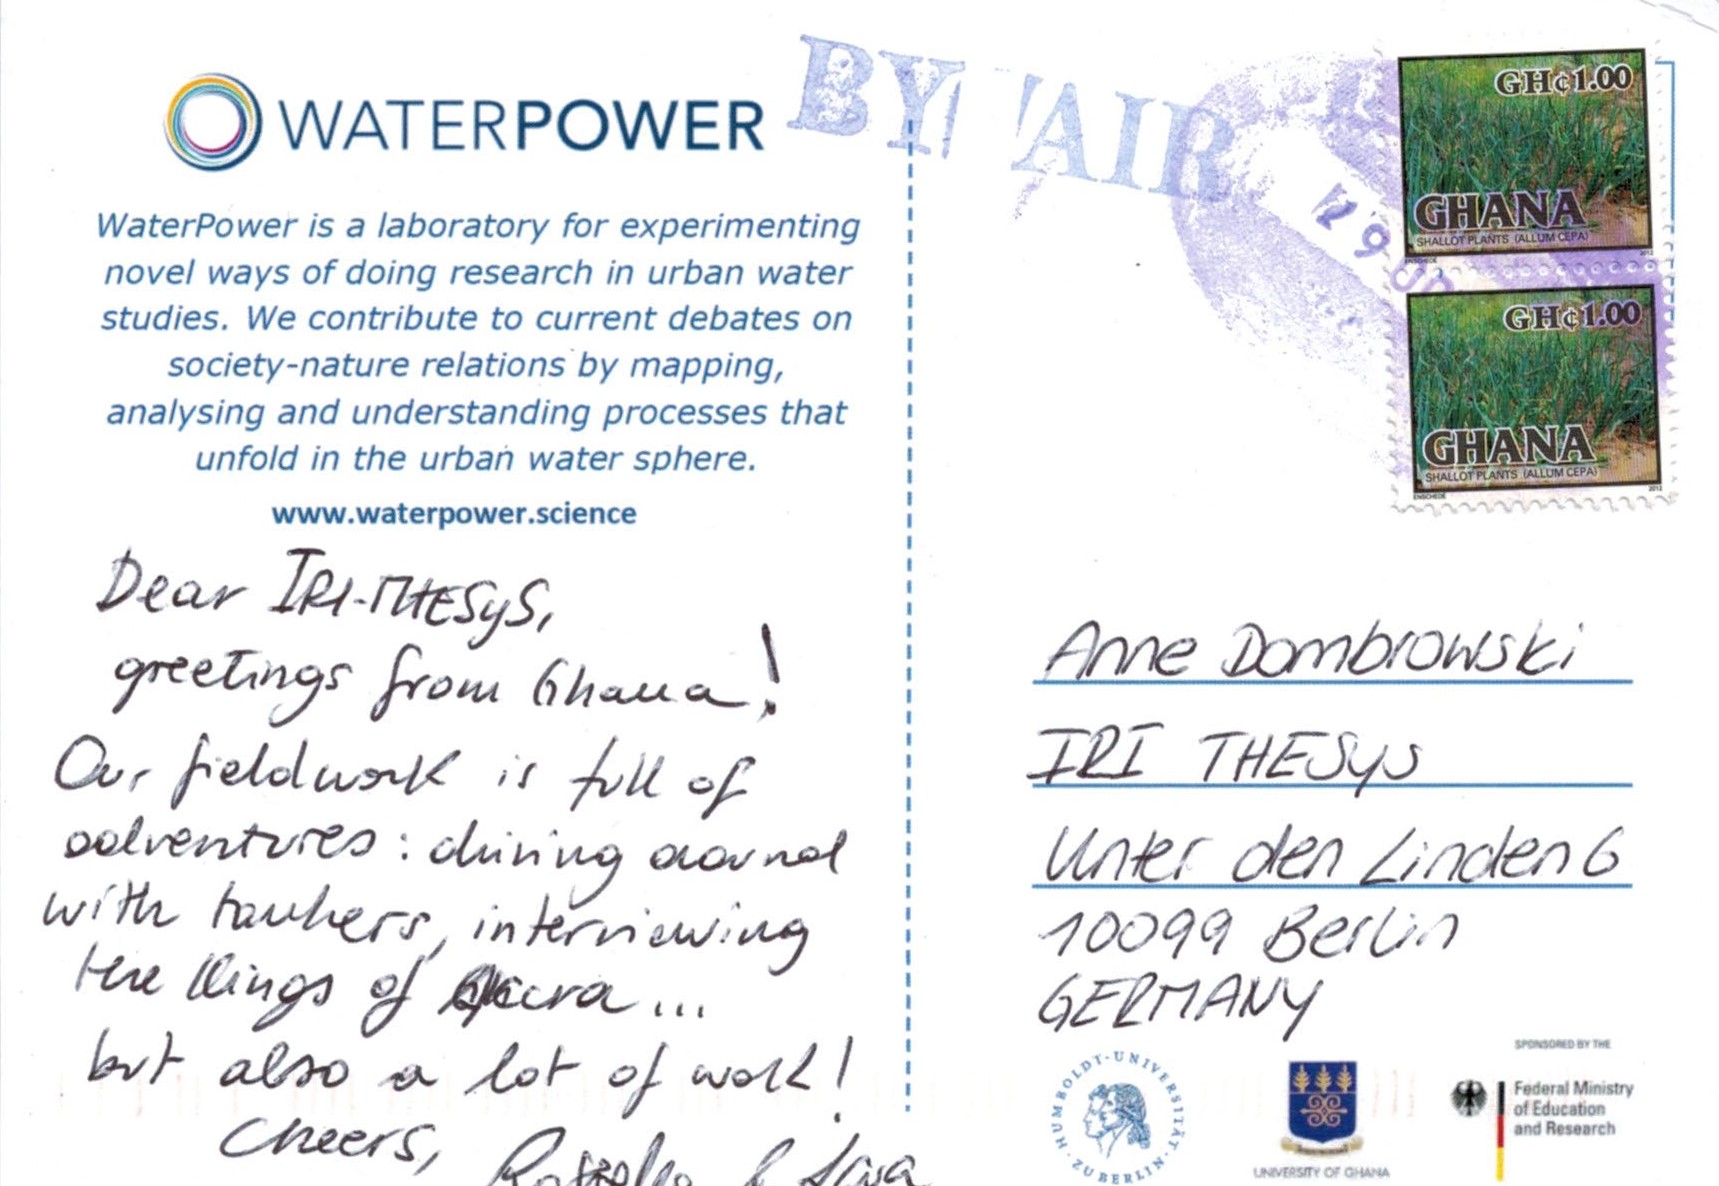 WATERPOWER
WaterPower is a laboratory for experimenting
novel ways of doing research in urban water
studies. We contribute to current debates on
society-nature relations by mapping,
analysing and understanding processes that
unfold in the urban water sphere.
www.waterpower.science
Dear IRI-THESyS,
greetings from Ghana!
Our fieldwork is full of
adventures: driving around
with tankers, interviewing
the Kings of Accra...
but also a lot of work!
Cheers,
BY AIR
GH¢1.00
GHANA
SHALLOT PLANTS (ALLUM CEPA)
ENSCHEDE 2012
GH¢1.00
GHANA
SHALLOT PLANTS (ALLUM CEPA)
ENSCHEDE 2012
Anne Dombrowski
IRI THESys
Unter den Linden 6
10099 Berlin
GERMANY
HUMBOLDT-UNIVERSITÄT ZU BERLIN
UNIVERSITY OF GHANA
SPONSORED BY THE
Federal Ministry
of Education
and Research